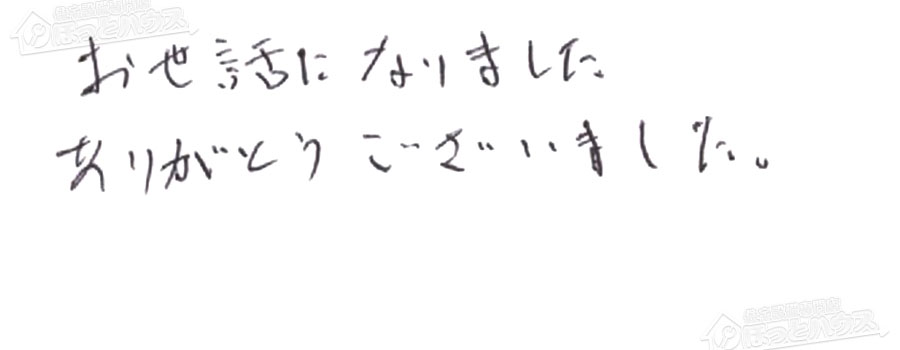 ほっとハウス
お世話になりました
ありがとうございました。
ほっとハウス